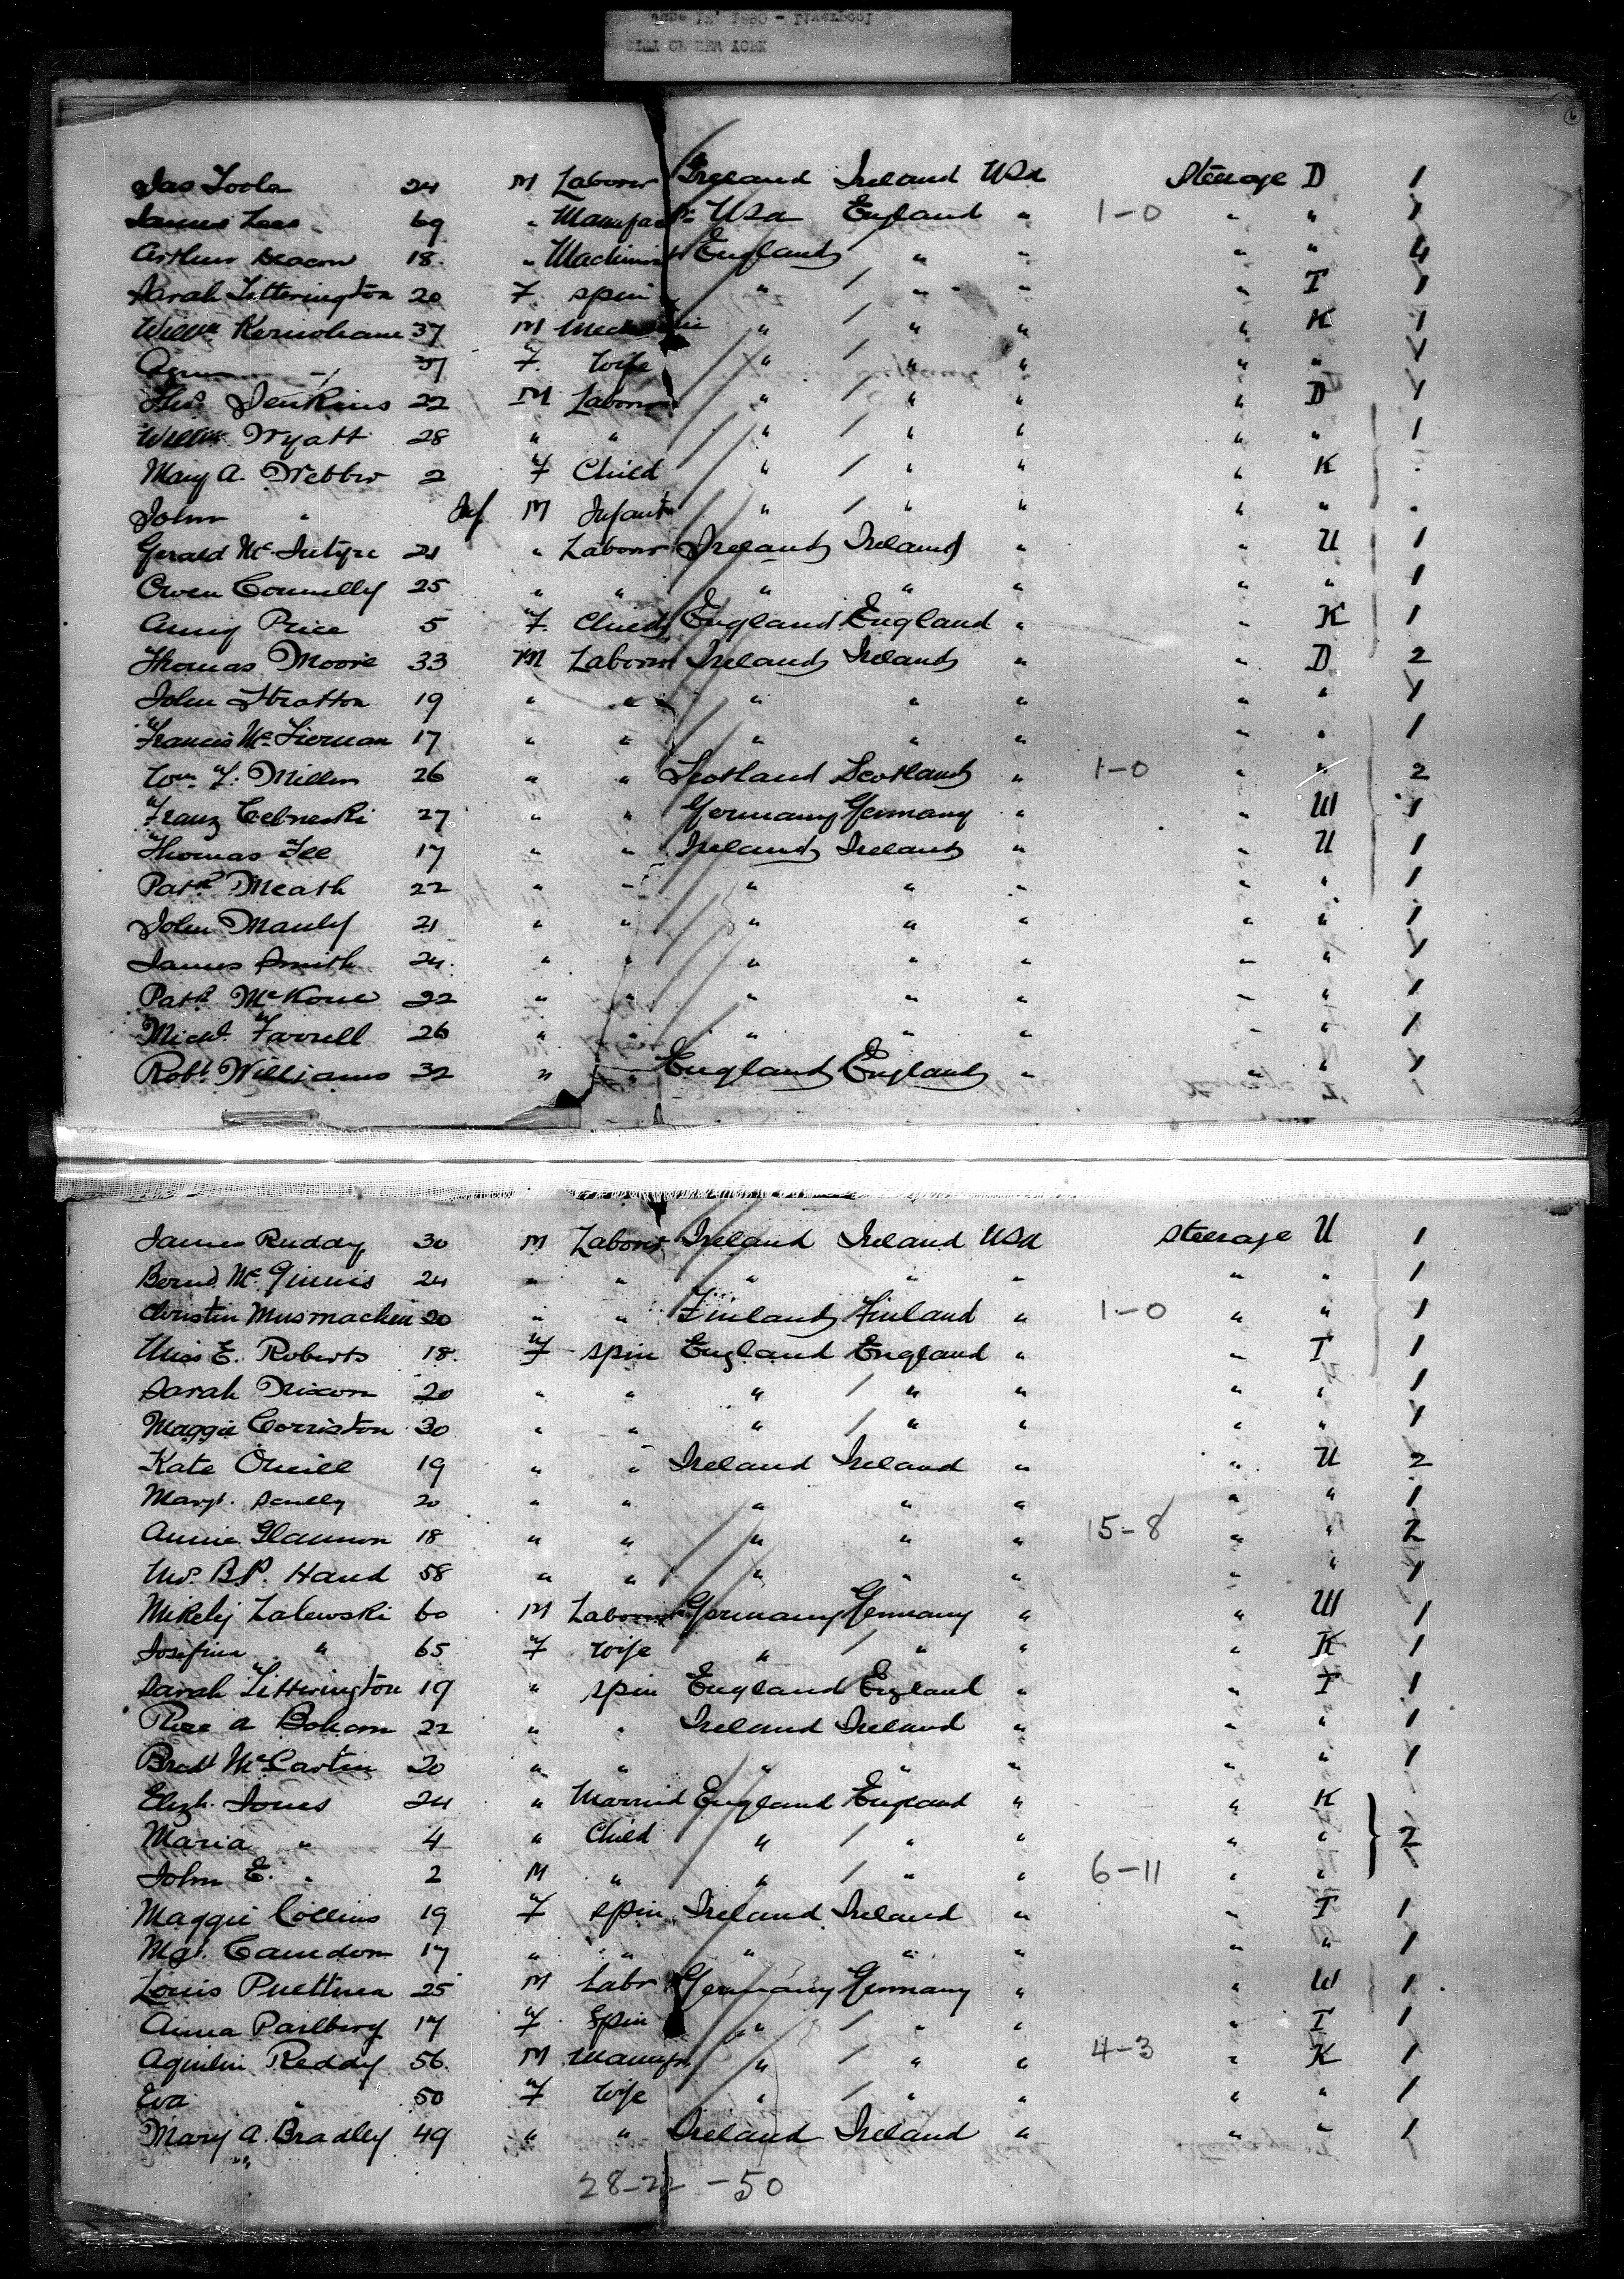 June 12, 1890 - Liverpool
CITY OF NEW YORK
6
Jas Toole 24 M Laborer Ireland Ireland USA Steerage D 1
James Lees 69 " Manufactr USA England " 1-0 " " 1
Arthur Deacon 18 " Machinist England " " " " 4
Sarah Titterington 20 F Spin " / " " " T 1
Willm 37 M Mechanic " / " " " K 1
37 F. Wife " / " " " " 1
Thos Jenkins 22 M Laborer " / " " " D 1
Willm Wyatt 28 " " " / " " " " 1
Mary A. Webber 2 F Child " / " " " K
John " Inf M Infant " / " " " "
Gerald McIntyre 21 " Laborer Ireland Ireland " " U 1
Owen Connelly 25 " " " " " " " 1
Price 5 F. Child England England " " K 1
Thomas Moore 33 M Laborer Ireland Ireland " " D 2
John Stratton 19 " " " " " " " 1
Francis McTiernan 17 " " " " " " " 1
Wm F. Miller 26 " " Scotland Scotland " 1-0 " " 2
Franz 27 " " Germany Germany " " W 1
Thomas Fee 17 " " Ireland Ireland " " U 1
Patk Meath 22 " " " " " " " 1
John Manly 21 " " " " " " " 1
James Smith 24 " " " " " " " 1
Patk McKone 22 " " " " " " " 1
Michl Farrell 26 " " " " " " " 1
Robt Williams 32 " " England England " " " 1
James Ruddy 30 M Laborer Ireland Ireland USA Steerage U 1
Bernd McGinnis 24 " " " " " " " 1
Christin 20 " " Finland Finland " 1-0 " " 1
Miss E. Roberts 18 F Spin England England " " T 1
Sarah Nixon 20 " " " / " " " " 1
Maggie Corriston 30 " " " / " " " " 1
Kate ONeill 19 " " Ireland Ireland " " U 2
Margt. Scully 20 " " " " " " " 1
Annie Glannon 18 " " " " " 15-8 " " 2
Mrs. B.P. Hand 58 " " " " " " " 1
Zalewski 60 M Laborer Germany Germany " " W 1
Josefina " 65 F Wife " / " " " K 1
Sarah Titterington 19 " Spin England England " " T 1
Rose A 22 " " Ireland Ireland " " " 1
McCartin 20 " " " " " " " 1
Elizh. Jones 24 " Married England England " " K
Maria " 4 " Child " / " " " " 2
John E. " 2 M " " / " " 6-11 " "
Maggie Collins 19 F Spin Ireland Ireland " " T 1
Mgt. 17 " " " " " " " 1
Louis 25 M Labr Germany Germany " " W 1
Anna Parlberg 17 F Spin " / " " " T 1
Reddy 56 M Manufr " / " " 4-3 " K 1
Eva " 50 F Wife " / " " " " 1
Mary A. Bradley 49 " " Ireland Ireland " " " 1
28-22 -50